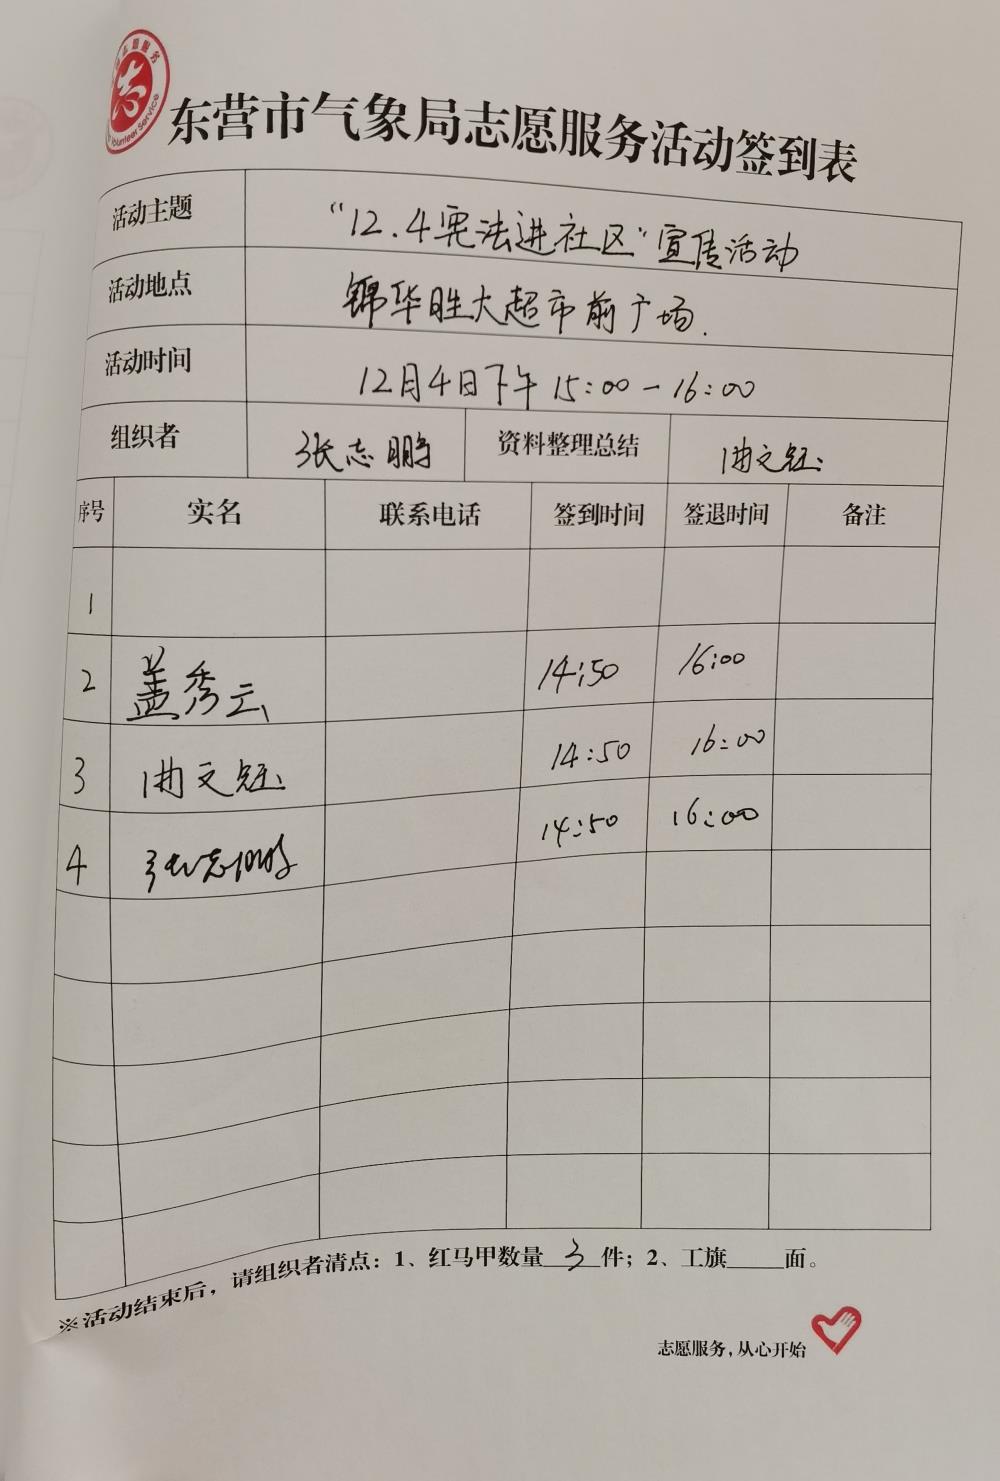 志愿服务
Volunteer Service
东营市气象局志愿服务活动签到表
活动主题 “12.4宪法进社区”宣传活动
活动地点 锦华胜大超市前广场.
活动时间 12月4日下午 15:00-16:00
组织者 张志鹏 资料整理总结 曲文钰
序号 实名 联系电话 签到时间 签退时间 备注
1
2 盖秀云 14:50 16:00
3 曲文钰 14:50 16:00
4 张志鹏 14:50 16:00
※活动结束后，请组织者清点：1、红马甲数量 3 件；2、工旗_____面。
志愿服务，从心开始